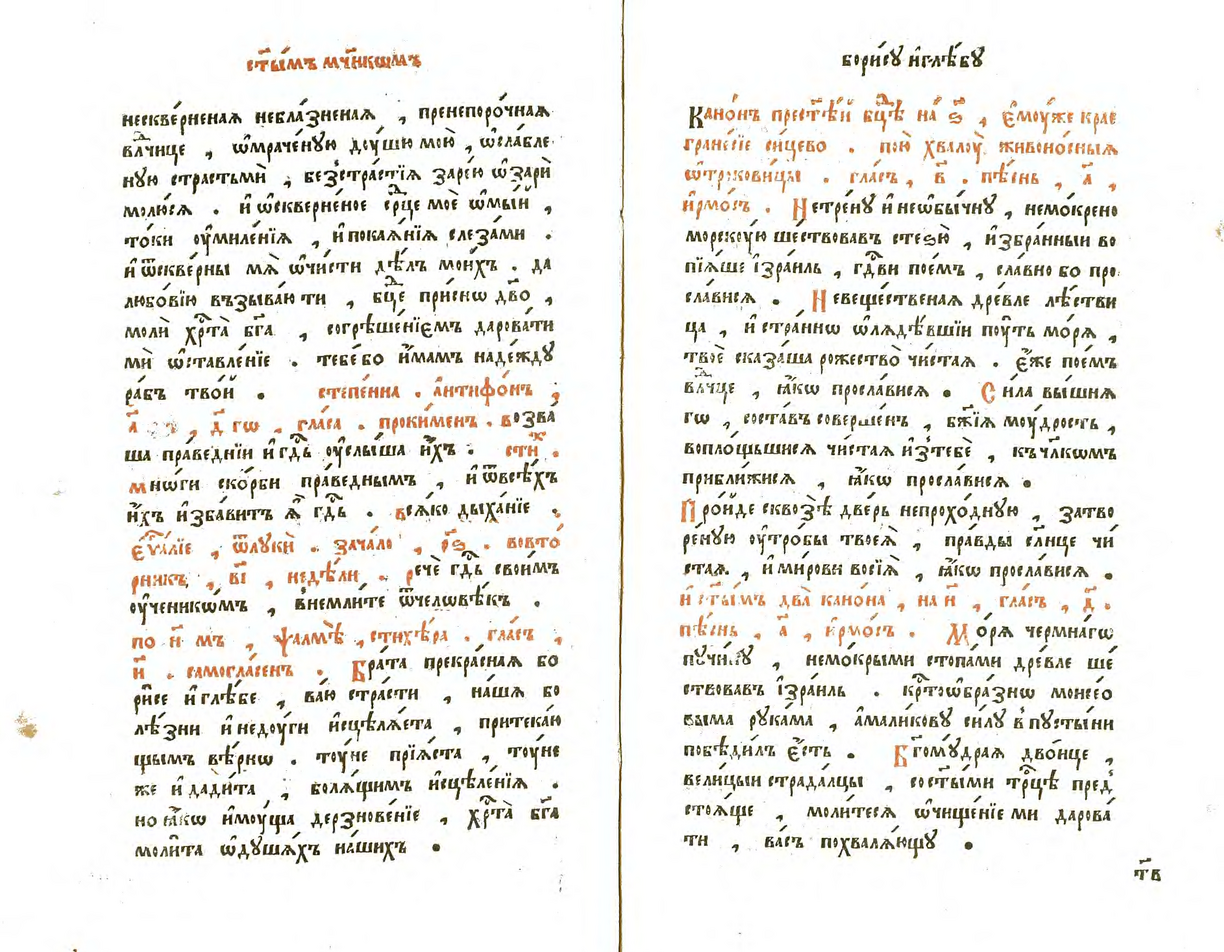 ст҃ы́мъ мч҃нкѡмъ
нескве́рненая небла́зненая , пренепоро́чная
влⷣчице , ѡ҆мраче́нꙋю дꙋ́шꙋ мою̀ , ѡ҆сла́бле
нꙋю страстьмѝ , безъстра́стїѧ заре́ю ѡ҆зарѝ
молю́сѧ . и҆ ѡ҆скверне́ное срⷣце моѐ ѡ҆мы́й ,
то́ки оу҆миле́нїѧ , и҆ покаѧ́нїѧ слеза́ми .
и҆ ѿскве́рны мѧ̀ ѡ҆чи́сти дѣ́лъ мои́хъ . да
любо́вїю възыва́ю ти , бцⷣе при́снѡ дв҃о ,
молѝ хрⷭ҇та̀ бг҃а , согрѣше́нїємъ дарова́ти
мѝ ѡ҆ставле́нїе . тебе́ бо и҆́мамъ наде́ждꙋ
ра́бъ тво́й . степе́нна . а҆нтифо́нъ ,
а҃ , д҃ гѡ , гла́са . проки́менъ . возва
ша пра́веднїи и҆ гдⷭ҇ь оу҆слы́ша и҆́хъ . сти́хъ .
мнѡ́ги ско́рби пра́веднымъ , и҆ ѿ всѣ́хъ
и҆́хъ и҆зба́витъ ѧ҆̀ гдⷭ҇ь . всѧ́ко дыха́нїе .
є҆ѵⷢ҇лїе , ѿ лꙋкѝ . зача́ло , рѕ҃ . во вто́
рникъ , в҃і , неде́ли . рече́ гдⷭ҇ь свои́мъ
оу҆ченикѡ́мъ , внемли́те ѿ человѣ́къ .
по н҃ мъ , ѱалмѣ̀ , стихе́ра . гла́съ ,
и҃ . самогла́сенъ . Бра́та прекра́сная бо
ри́се и҆ глѣ́бе , ва́ю стра́сти , на́шѧ бо
лѣ́зни и҆ недꙋ́ги и҆сцѣлѧ́ета , притека́ю
щымъ вѣ́рнѡ . тꙋ́не прїѧ́ста , тꙋ́не
же и҆ дади́та , болѧ́щимъ и҆сцѣле́нїѧ .
но ꙗ҆́кѡ и҆мꙋ́ща дерзнове́нїе , хрⷭ҇та̀ бг҃а
моли́та ѡ҆ дꙋша́хъ на́шихъ .
бори́сꙋ и҆ глѣ́бꙋ
Кано́нъ прест҃ѣ́й бцⷣѣ на ѕ҃ , є҆мꙋ́же крае
гране́сїе си́цево . пою̀ хвалꙋ̀ живоно́сныѧ
ѻ҆трокови́цы . гла́съ , в҃ . пѣ́снь , а҃ ,
і҆рмо́съ . Нетре́нꙋ и҆ неѡ҆бы́чнꙋ , немо́крено
морскꙋ́ю ше́ствовавъ стезю̀ , и҆збра́нныи во
пїѧ́ше і҆зра́иль , гдⷭ҇ви пое́мъ , сла́вно бо про
сла́висѧ . Невеще́ственая дре́вле лѣ́стви
ца , и҆ стра́ннѡ ѡ҆лѧдѣ́вшїи пꙋ́ть мо́рѧ ,
твоѐ сказа́ша рожество̀ чи́стая . є҆́же пое́мъ
влⷣчце , ꙗ҆́кѡ просла́висѧ . Си́ла вы́шнѧ
гѡ , соста́въ соверше́нъ , бж҃їѧ мꙋ́дрость ,
вопло́щьшисѧ чи́стая и҆з тебѐ , къ чл҃кѡмъ
прибли́жисѧ , ꙗ҆́кѡ просла́висѧ .
Про́йде сквозѣ̀ две́рь непрохо́днꙋю , затво
ре́нꙋю оу҆тро́бы твоеѧ̀ , пра́вды сл҃нце чи́
стая , и҆ ми́рови восїѧ̀ , ꙗ҆́кѡ просла́висѧ .
и҆ ст҃ы́мъ два̀ кано́на , на и҃ , гла́съ , д҃ .
пѣ́снь , а҃ , і҆рмо́съ . Мо́рѧ чермна́гѡ
пꙋчи́нꙋ , немо́крыми стопа́ми дре́вле ше́
ствовавъ і҆зра́иль . крⷭ҇тоѡ҆бра́знѡ моисе́о
выма рꙋка́ма , а҆мали́ковꙋ си́лꙋ в пꙋсты́ни
побѣди́лъ є҆́сть . Бг҃омꙋ́драя двои́це ,
вели́цыи страда́лцы , со ст҃ы́ми трⷪ҇цѣ пред̾
стоѧ́ще , моли́тесѧ ѡ҆чище́нїе ми дарова́
ти , ва́съ похвалѧ́ющꙋ .
т҃в